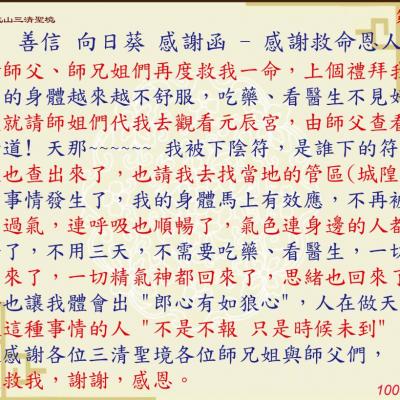 山三清聖境
善信 向日葵 感謝函 - 感謝救命恩人
師父、師兄姐們再度救我一命，上個禮拜我
的身體越來越不舒服，吃藥、看醫生不見
就請師姐們代我去觀看元辰宮，由師父查看
道! 天那~~~~~~ 我被下陰符，是誰下的符
也查出來了，也請我去找當地的管區(城隍
事情發生了，我的身體馬上有效應，不再被
過氣，連呼吸也順暢了，氣色連身邊的人都
了，不用三天，不需要吃藥、看醫生，一切
來了，一切精氣神都回來了，思緒也回來了
也讓我體會出 "郎心有如狼心"，人在做天
這種事情的人 "不是不報 只是時候未到"
感謝各位三清聖境各位師兄姐與師父們，
救我，謝謝，感恩。
100